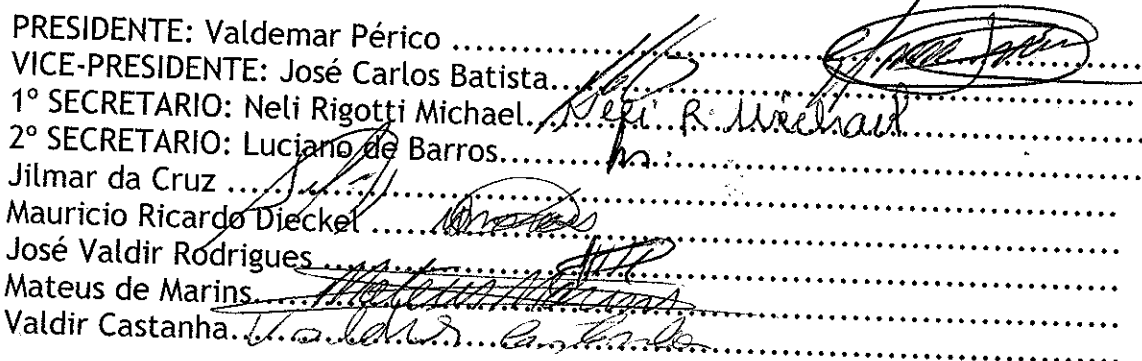 PRESIDENTE: Valdemar Périco ..........................................................
VICE-PRESIDENTE: José Carlos Batista..........................................................
1º SECRETARIO: Neli Rigotti Michael.....Neli R. Michael..........................
2º SECRETARIO: Luciano de Barros..........................................................
Jilmar da Cruz ..........................................................
Mauricio Ricardo Dieckel ..........................................................
José Valdir Rodrigues..........................................................
Mateus de Marins.....Mateus Marins..........................
Valdir Castanha.....Valdir Castanha..........................